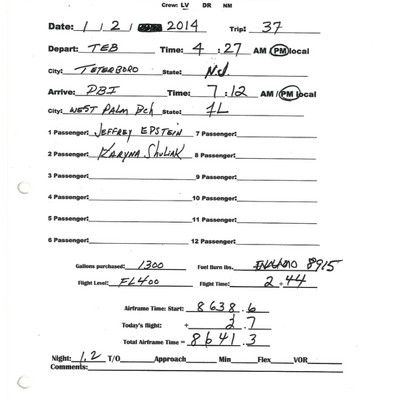 Crew: LV DR NM
Date: 1 / 2 / 2014 Trip: 37
Depart: TEB Time: 4 : 27 AM PM local
City: TETERBORO State: N.J.
Arrive: PBI Time: 7 : 12 AM / PM local
City: WEST PALM Bch State: FL
1 Passenger: JEFFREY EPSTEIN 7 Passenger:
2 Passenger: KARYNA SHULIAK 8 Passenger:
3 Passenger: 9 Passenger:
4 Passenger: 10 Passenger:
5 Passenger: 11 Passenger:
6 Passenger: 12 Passenger:
Gallons purchased: 1300 Fuel Burn lbs. 8915
Flight Level: FL400 Flight Time: 2 + 44
Airframe Time: Start: 8638.6
Today's flight: + 2.7
Total Airframe Time = 8641.3
Night: 1.2 T/O Approach Min Flex VOR
Comments: